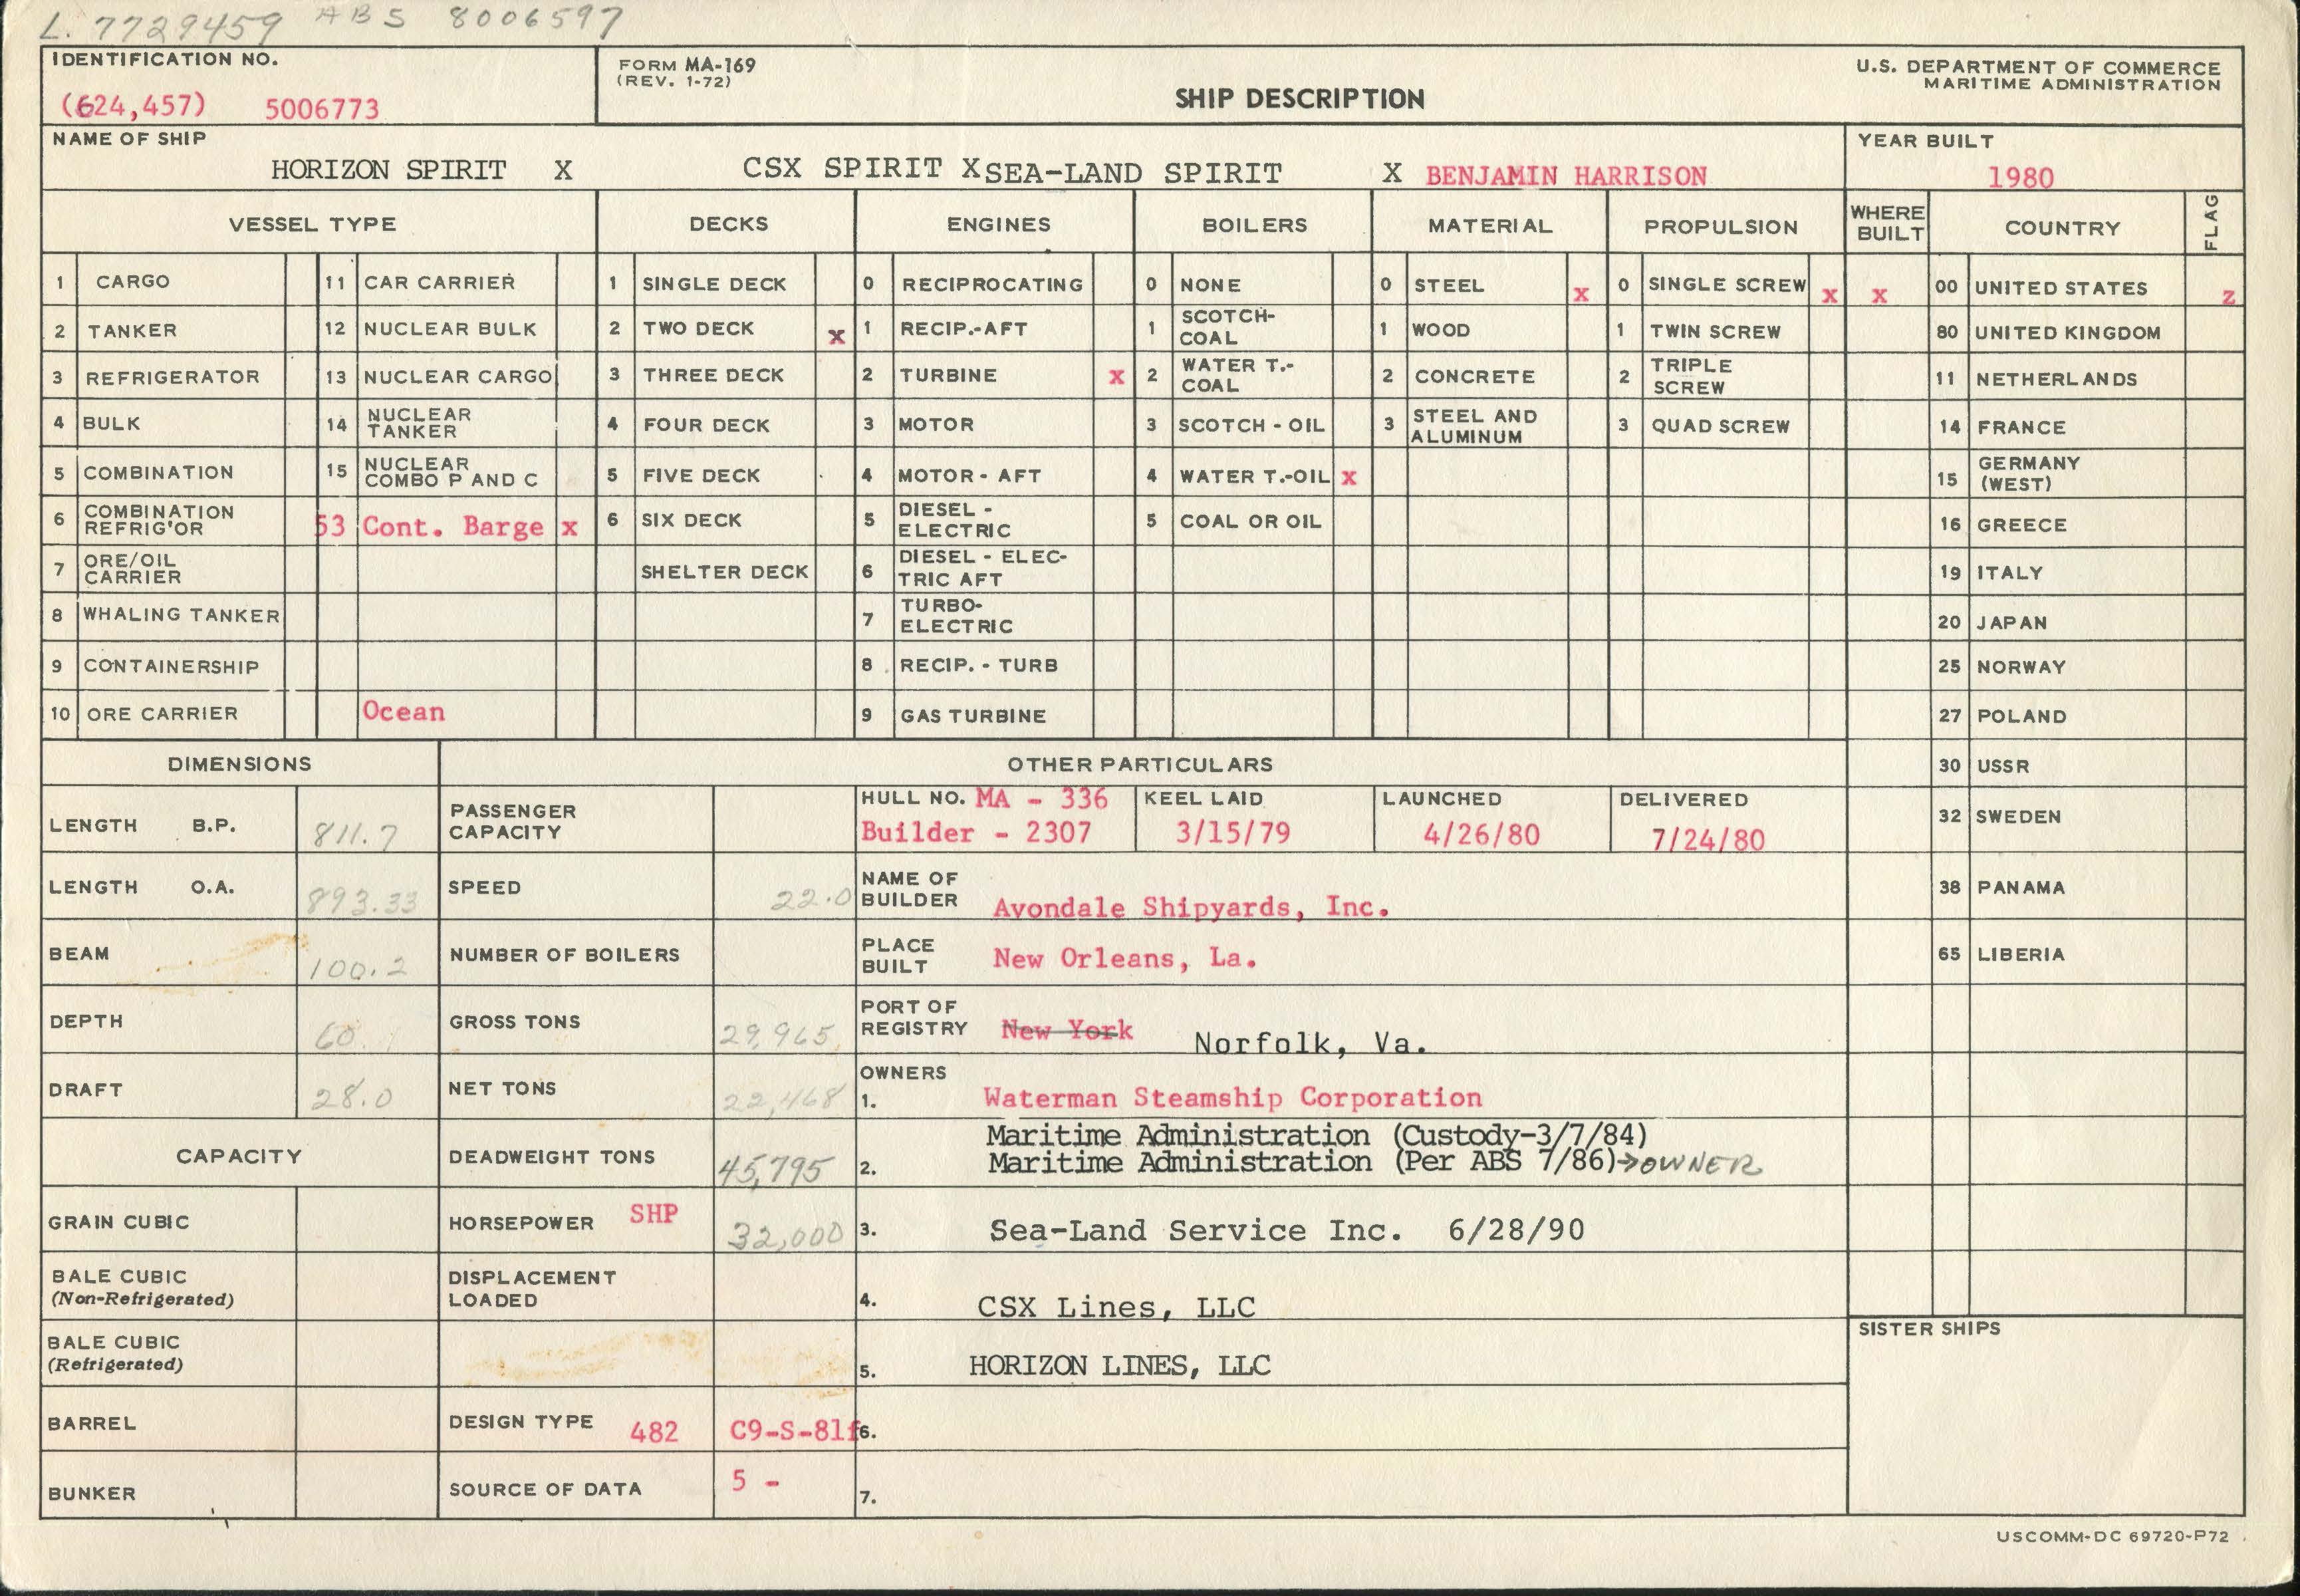 L. 7729459 ABS 8006597
IDENTIFICATION NO.
(624,457) 5006773
FORM MA-169
(REV. 1-72)
SHIP DESCRIPTION
U.S. DEPARTMENT OF COMMERCE
MARITIME ADMINISTRATION
NAME OF SHIP
HORIZON SPIRIT X CSX SPIRIT X SEA-LAND SPIRIT X BENJAMIN HARRISON
YEAR BUILT
1980
VESSEL TYPE DECKS ENGINES BOILERS MATERIAL PROPULSION WHERE BUILT COUNTRY FLAG
1 CARGO 11 CAR CARRIER 1 SINGLE DECK 0 RECIPROCATING 0 NONE 0 STEEL x 0 SINGLE SCREW x x 00 UNITED STATES z
2 TANKER 12 NUCLEAR BULK 2 TWO DECK x 1 RECIP.-AFT 1 SCOTCH-COAL 1 WOOD 1 TWIN SCREW 80 UNITED KINGDOM
3 REFRIGERATOR 13 NUCLEAR CARGO 3 THREE DECK 2 TURBINE x 2 WATER T.-COAL 2 CONCRETE 2 TRIPLE SCREW 11 NETHERLANDS
4 BULK 14 NUCLEAR TANKER 4 FOUR DECK 3 MOTOR 3 SCOTCH - OIL 3 STEEL AND ALUMINUM 3 QUAD SCREW 14 FRANCE
5 COMBINATION 15 NUCLEAR COMBO P AND C 5 FIVE DECK 4 MOTOR - AFT 4 WATER T.-OIL x 15 GERMANY (WEST)
6 COMBINATION REFRIG'OR 53 Cont. Barge x 6 SIX DECK 5 DIESEL - ELECTRIC 5 COAL OR OIL 16 GREECE
7 ORE/OIL CARRIER SHELTER DECK 6 DIESEL - ELECTRIC AFT 19 ITALY
8 WHALING TANKER 7 TURBO-ELECTRIC 20 JAPAN
9 CONTAINERSHIP 8 RECIP. - TURB 25 NORWAY
10 ORE CARRIER Ocean 9 GAS TURBINE 27 POLAND
DIMENSIONS OTHER PARTICULARS 30 USSR
LENGTH B.P. 811.7 PASSENGER CAPACITY HULL NO. MA - 336 KEEL LAID LAUNCHED DELIVERED 32 SWEDEN
Builder - 2307 3/15/79 4/26/80 7/24/80
LENGTH O.A. 893.33 SPEED 22.0 NAME OF BUILDER Avondale Shipyards, Inc. 38 PANAMA
BEAM 100.2 NUMBER OF BOILERS PLACE BUILT New Orleans, La. 65 LIBERIA
DEPTH 60. GROSS TONS 29,965 PORT OF REGISTRY New York Norfolk, Va.
DRAFT 28.0 NET TONS 22,468 OWNERS
1. Waterman Steamship Corporation
Maritime Administration (Custody-3/7/84)
CAPACITY DEADWEIGHT TONS 45,795 2. Maritime Administration (Per ABS 7/86)→OWNER
GRAIN CUBIC HORSEPOWER SHP 32,000 3. Sea-Land Service Inc. 6/28/90
BALE CUBIC (Non-Refrigerated) DISPLACEMENT LOADED 4. CSX Lines, LLC
BALE CUBIC (Refrigerated) 5. HORIZON LINES, LLC
SISTER SHIPS
BARREL DESIGN TYPE 482 C9-S-81f 6.
BUNKER SOURCE OF DATA 5 - 7.
USCOMM-DC 69720-P72